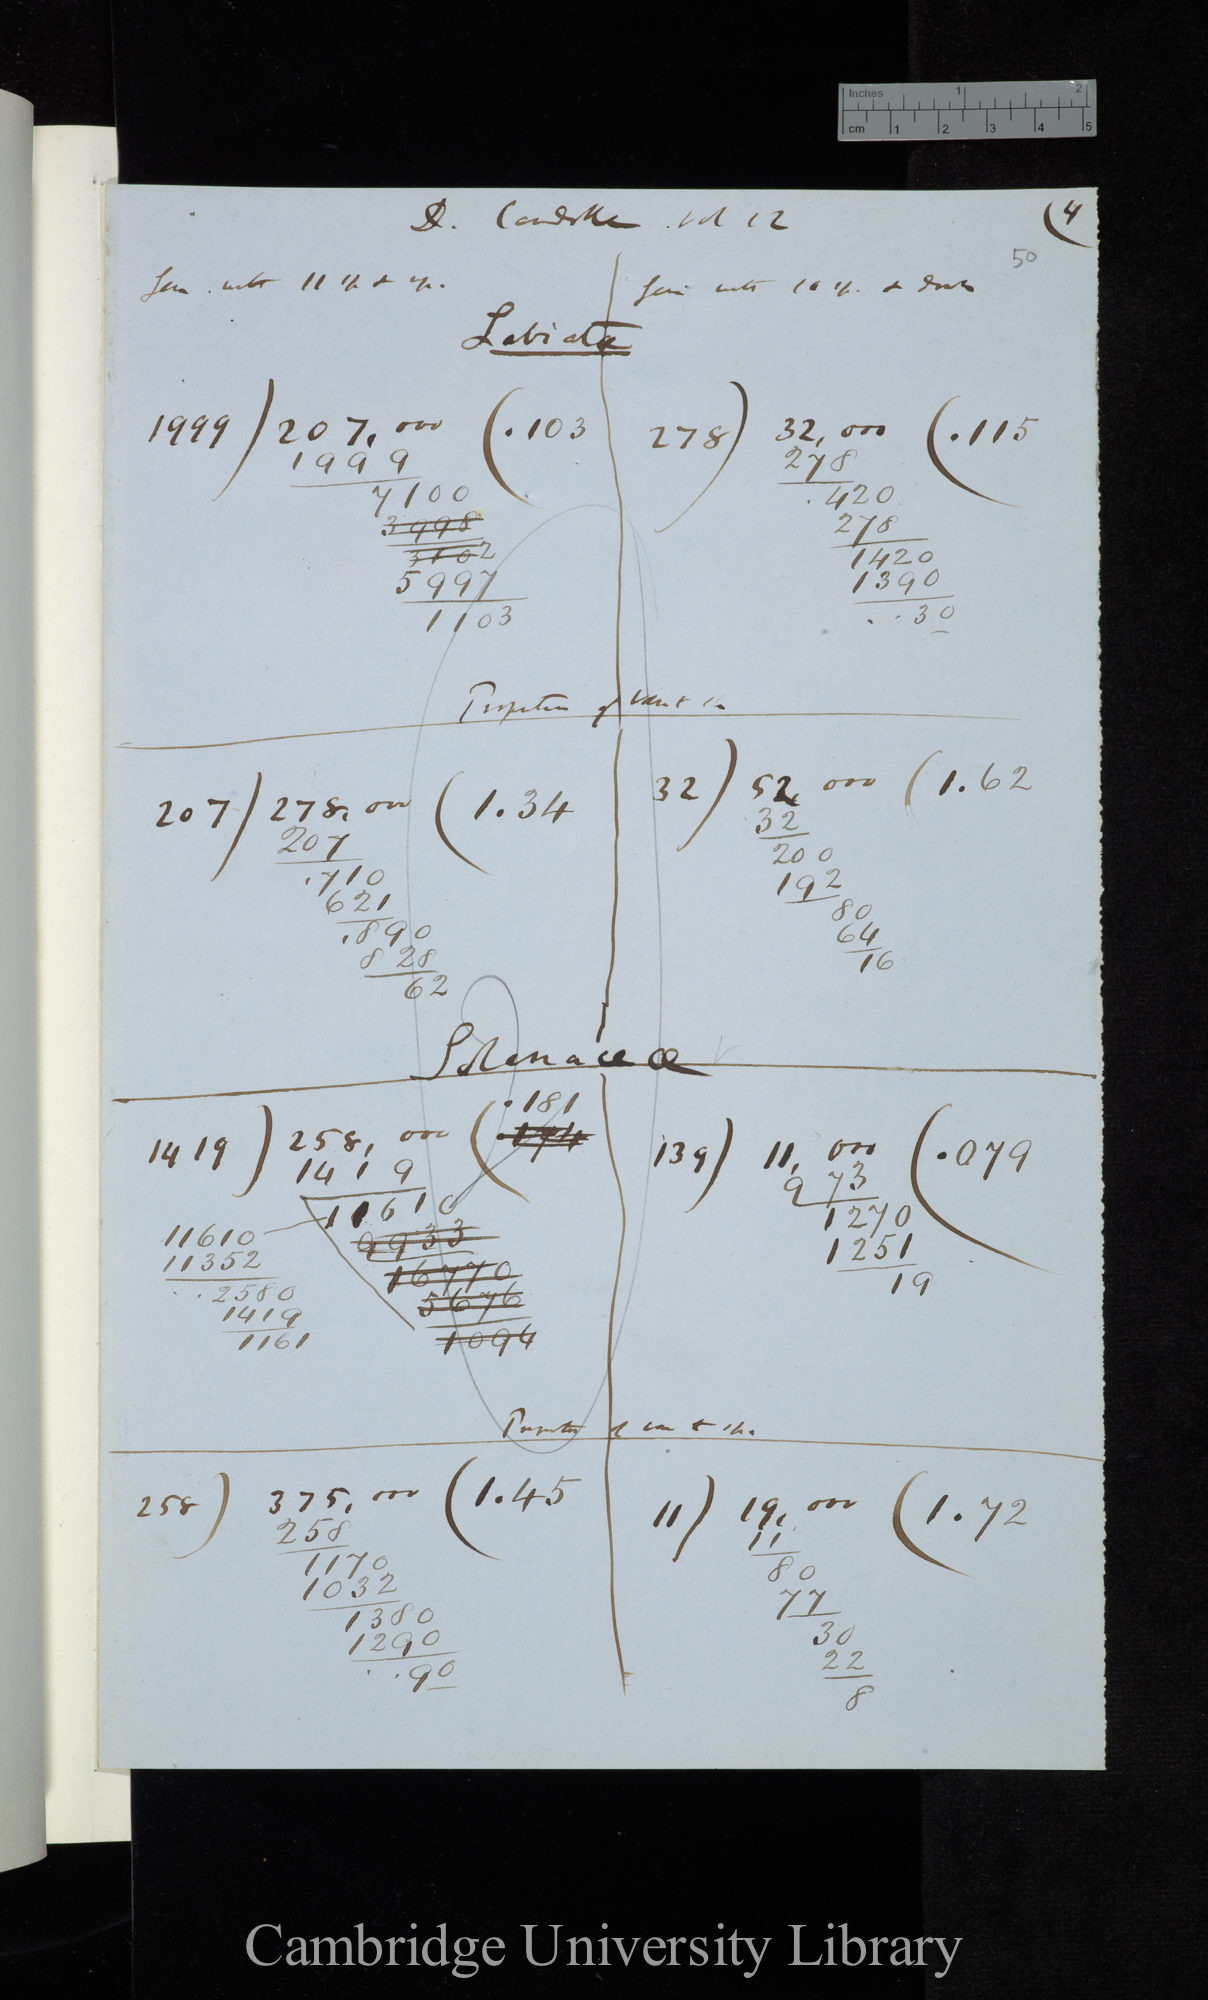 Inches 1 2
cm 1 2 3 4 5
D. Candolle vol 12
(4
50
Gen. with 11 sp & up.
Gen with 10 sp. & down
Labiatæ
1999) 207,000 (.103
1999
7100
3998
3102
5997
1103
278) 32,000 (.115
278
.420
278
1420
1390
..30
Proportion of Var to sp
207) 278,000 (1.34
207
.710
621
.890
828
62
32) 52,000 (1.62
32
200
192
80
64
16
Solanaceæ
1419) 258,000 (.181
.174
1419
11610
9933
16770
5676
1094
11610
11352
..2580
1419
1161
139) 11,000 (.079
973
1270
1251
19
Proportion of var to sp.
258) 375,000 (1.45
258
1170
1032
1380
1290
..90
11) 19,000 (1.72
11
80
77
30
22
8
Cambridge University Library